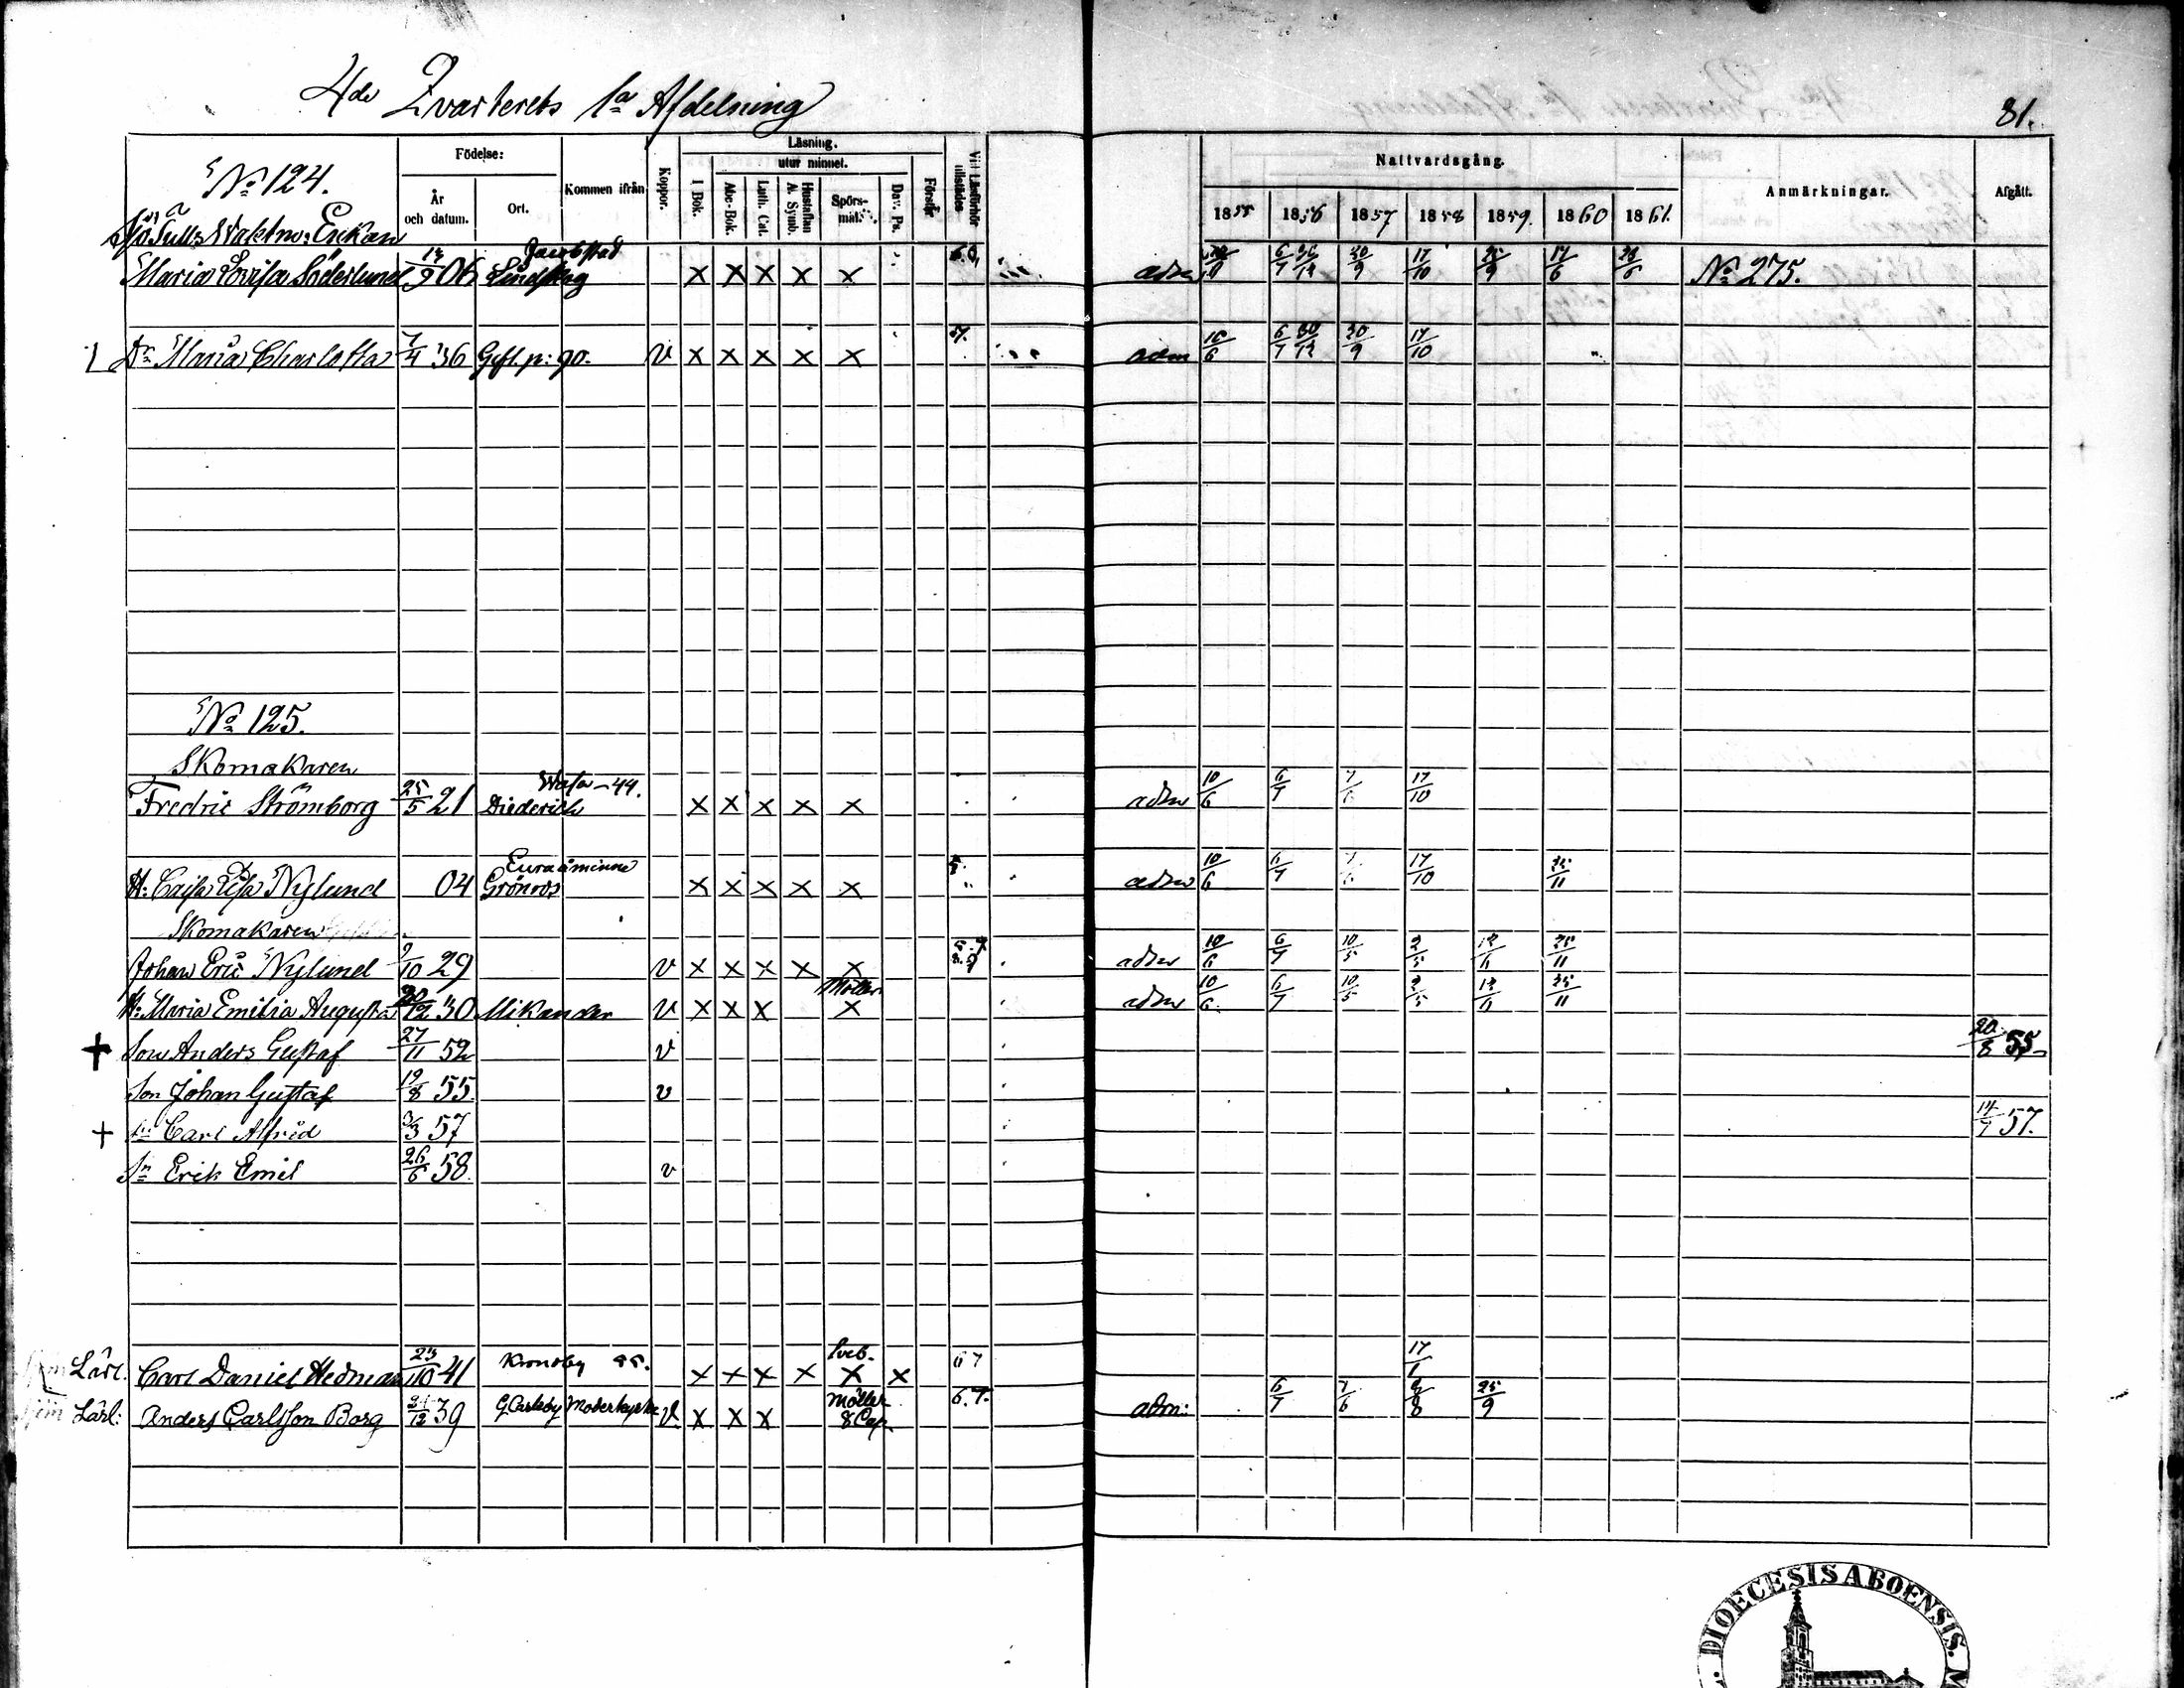 4de Qvarterets 1a Afdelning
81.
No 124.
Födelse:
År och datum.
Ort.
Kommen ifrån
Koppor.
Läsning.
utur minnet.
I Bok.
Abc-Bok.
Luth. Cat.
Hustaflan A. Symb.
Spörs-mål.
Dav. Ps.
Förstår
Vid Läsförhör tillstädes
Nattvardsgång.
1855 1856 1857 1858 1859. 1860 1861.
Anmärkningar.
Afgått.
Sjö Tulls Waktm: Enkan
Jacobstad
Maria Lovisa Söderlund 13/9 06 Lindskog X X X X X adm 6/7 30/12 30/9 17/10 17/6 No 275.
Dr Maria Charlotta 7/4 36 Gefl. p: 90. v X X X X X 57. adm 10/6 6/7 30/12 30/9 17/10
No 125.
Skomakaren
Wasa -44.
Fredric Strömborg 25/5 21 Diederichs X X X X X adm 10/6 6/7 7/6 17/10
Euraåminne
H: Cajsa Lisa Nylund 04 Grönroos X X X X X adm 10/6 6/7 7/6 17/10 25/11
Skomakaren
Johan Eric Nylund 9/10 29 v X X X X X adm 10/6 6/7 10/5 2/5 12/6 25/11
Möller
H: Maria Emilia Augusta 20/12 30 Mikander v X X X X adm 10/6 6/7 10/5 2/5 12/6 25/11
+ Son Anders Gustaf 27/11 52 v 20/8 55
Son Johan Gustaf 19/8 55. v
+ Sn Carl Alfred 3/3 57 14/7 57.
Sn Erik Emil 26/6 58 v
Sveb.
Lärl. Carl Daniel Hedman 23/10 41 Kronoby 55. X X X X X X 67 17/6
Möller
Lärl: Anders Carlsson Borg 21/12 39 G.Carleby Moderkyrka v X X X 8 Cap 6.7. adm: 6/7 7/6 8/8 25/9
DIOECESIS ABOENSIS.